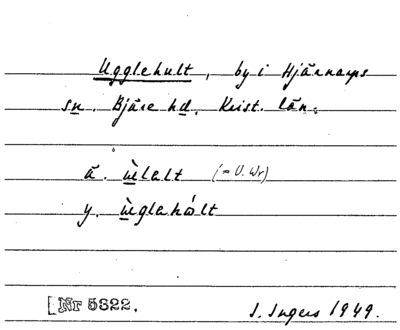 Ugglehult, by i Hjärnarps
sn. Bjäre hd. Krist. län.
ä. ùlalt (= U. Wr)
y. ùglahólt
[Nr 5822.
I. Ingers 1949.